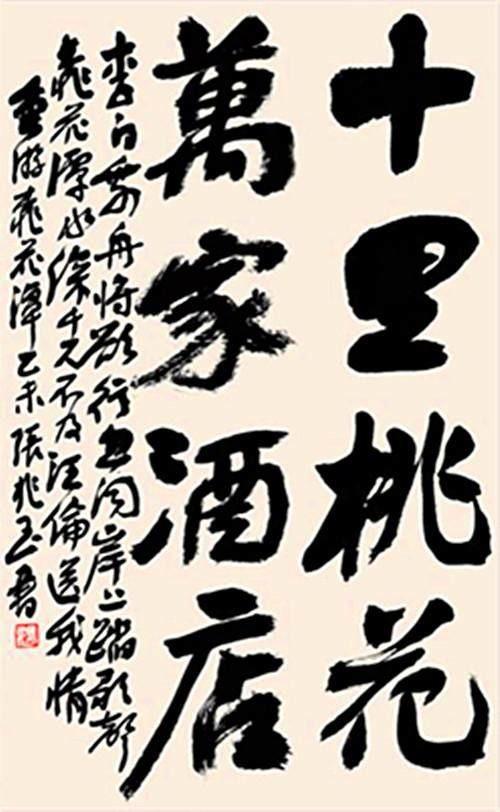 十里桃花
萬家酒店
李白乘舟将欲行忽闻岸上踏歌聲
桃花潭水深千尺不及汪倫送我情
重游桃花潭乙未張兆玉書